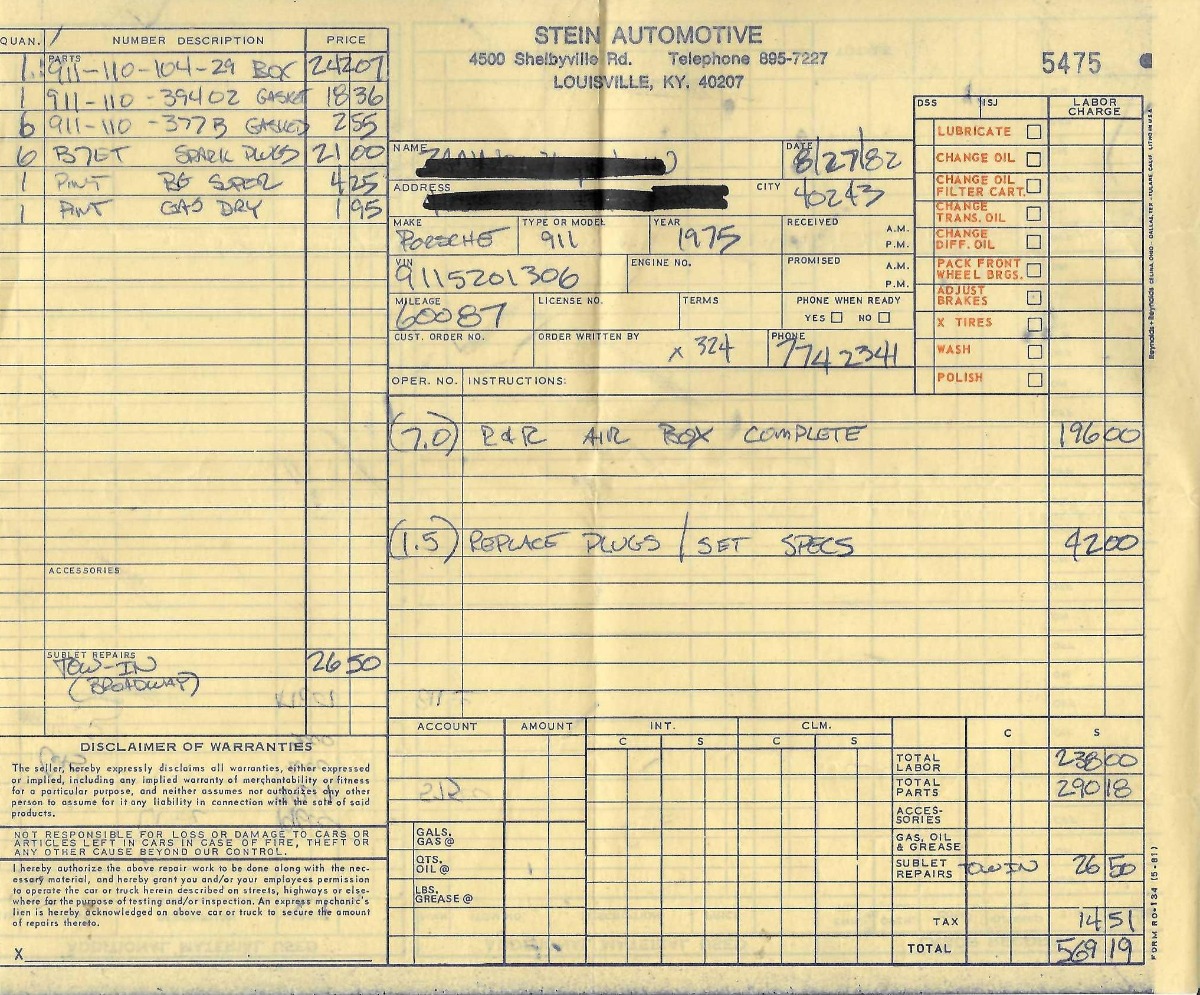 STEIN AUTOMOTIVE
4500 Shelbyville Rd. Telephone 895-7227
LOUISVILLE, KY. 40207
5475
QUAN. NUMBER DESCRIPTION PRICE
PARTS
1 911-110-104-29 BOX 242 07
1 911-110-39402 GASKET 18 36
6 911-110-377B GASKED 2 55
6 B7ET SPARK PLUGS 21 00
1 PINT BG SUPER 4 25
1 PINT GAS DRY 1 95
ACCESSORIES
SUBLET REPAIRS
TOW-IN 26 50
(BROADWAY)
NAME DATE 8/27/82
ADDRESS CITY 40243
MAKE PORSCHE TYPE OR MODEL 911 YEAR 1975 RECEIVED A.M. P.M.
VIN 9115201306 ENGINE NO. PROMISED A.M. P.M.
MILEAGE 60087 LICENSE NO. TERMS PHONE WHEN READY YES NO
CUST. ORDER NO. ORDER WRITTEN BY x 324 PHONE 7742341
DSS LABOR CHARGE
LUBRICATE
CHANGE OIL
CHANGE OIL FILTER CART.
CHANGE TRANS. OIL
CHANGE DIFF. OIL
PACK FRONT WHEEL BRGS.
ADJUST BRAKES
X TIRES
WASH
POLISH
OPER. NO. INSTRUCTIONS:
(7.0) R&R AIR BOX COMPLETE 196 00
(1.5) REPLACE PLUGS / SET SPECS 42 00
DISCLAIMER OF WARRANTIES
The seller, hereby expressly disclaims all warranties, either expressed
or implied, including any implied warranty of merchantability or fitness
for a particular purpose, and neither assumes nor authorizes any other
person to assume for it any liability in connection with the sale of said
products.
NOT RESPONSIBLE FOR LOSS OR DAMAGE TO CARS OR
ARTICLES LEFT IN CARS IN CASE OF FIRE, THEFT OR
ANY OTHER CAUSE BEYOND OUR CONTROL.
I hereby authorize the above repair work to be done along with the nec-
essary material, and hereby grant you and/or your employees permission
to operate the car or truck herein described on streets, highways or else-
where for the purpose of testing and/or inspection. An express mechanic's
lien is hereby acknowledged on above car or truck to secure the amount
of repairs thereto.
X
ACCOUNT AMOUNT INT. CLM.
C S C S C S
GALS. GAS @
QTS. OIL @
LBS. GREASE @
TOTAL LABOR 238 00
TOTAL PARTS 290 18
ACCES-SORIES
GAS, OIL & GREASE
SUBLET REPAIRS TOW IN 26 50
TAX 14 51
TOTAL 569 19
FORM RO-134 (5-81)